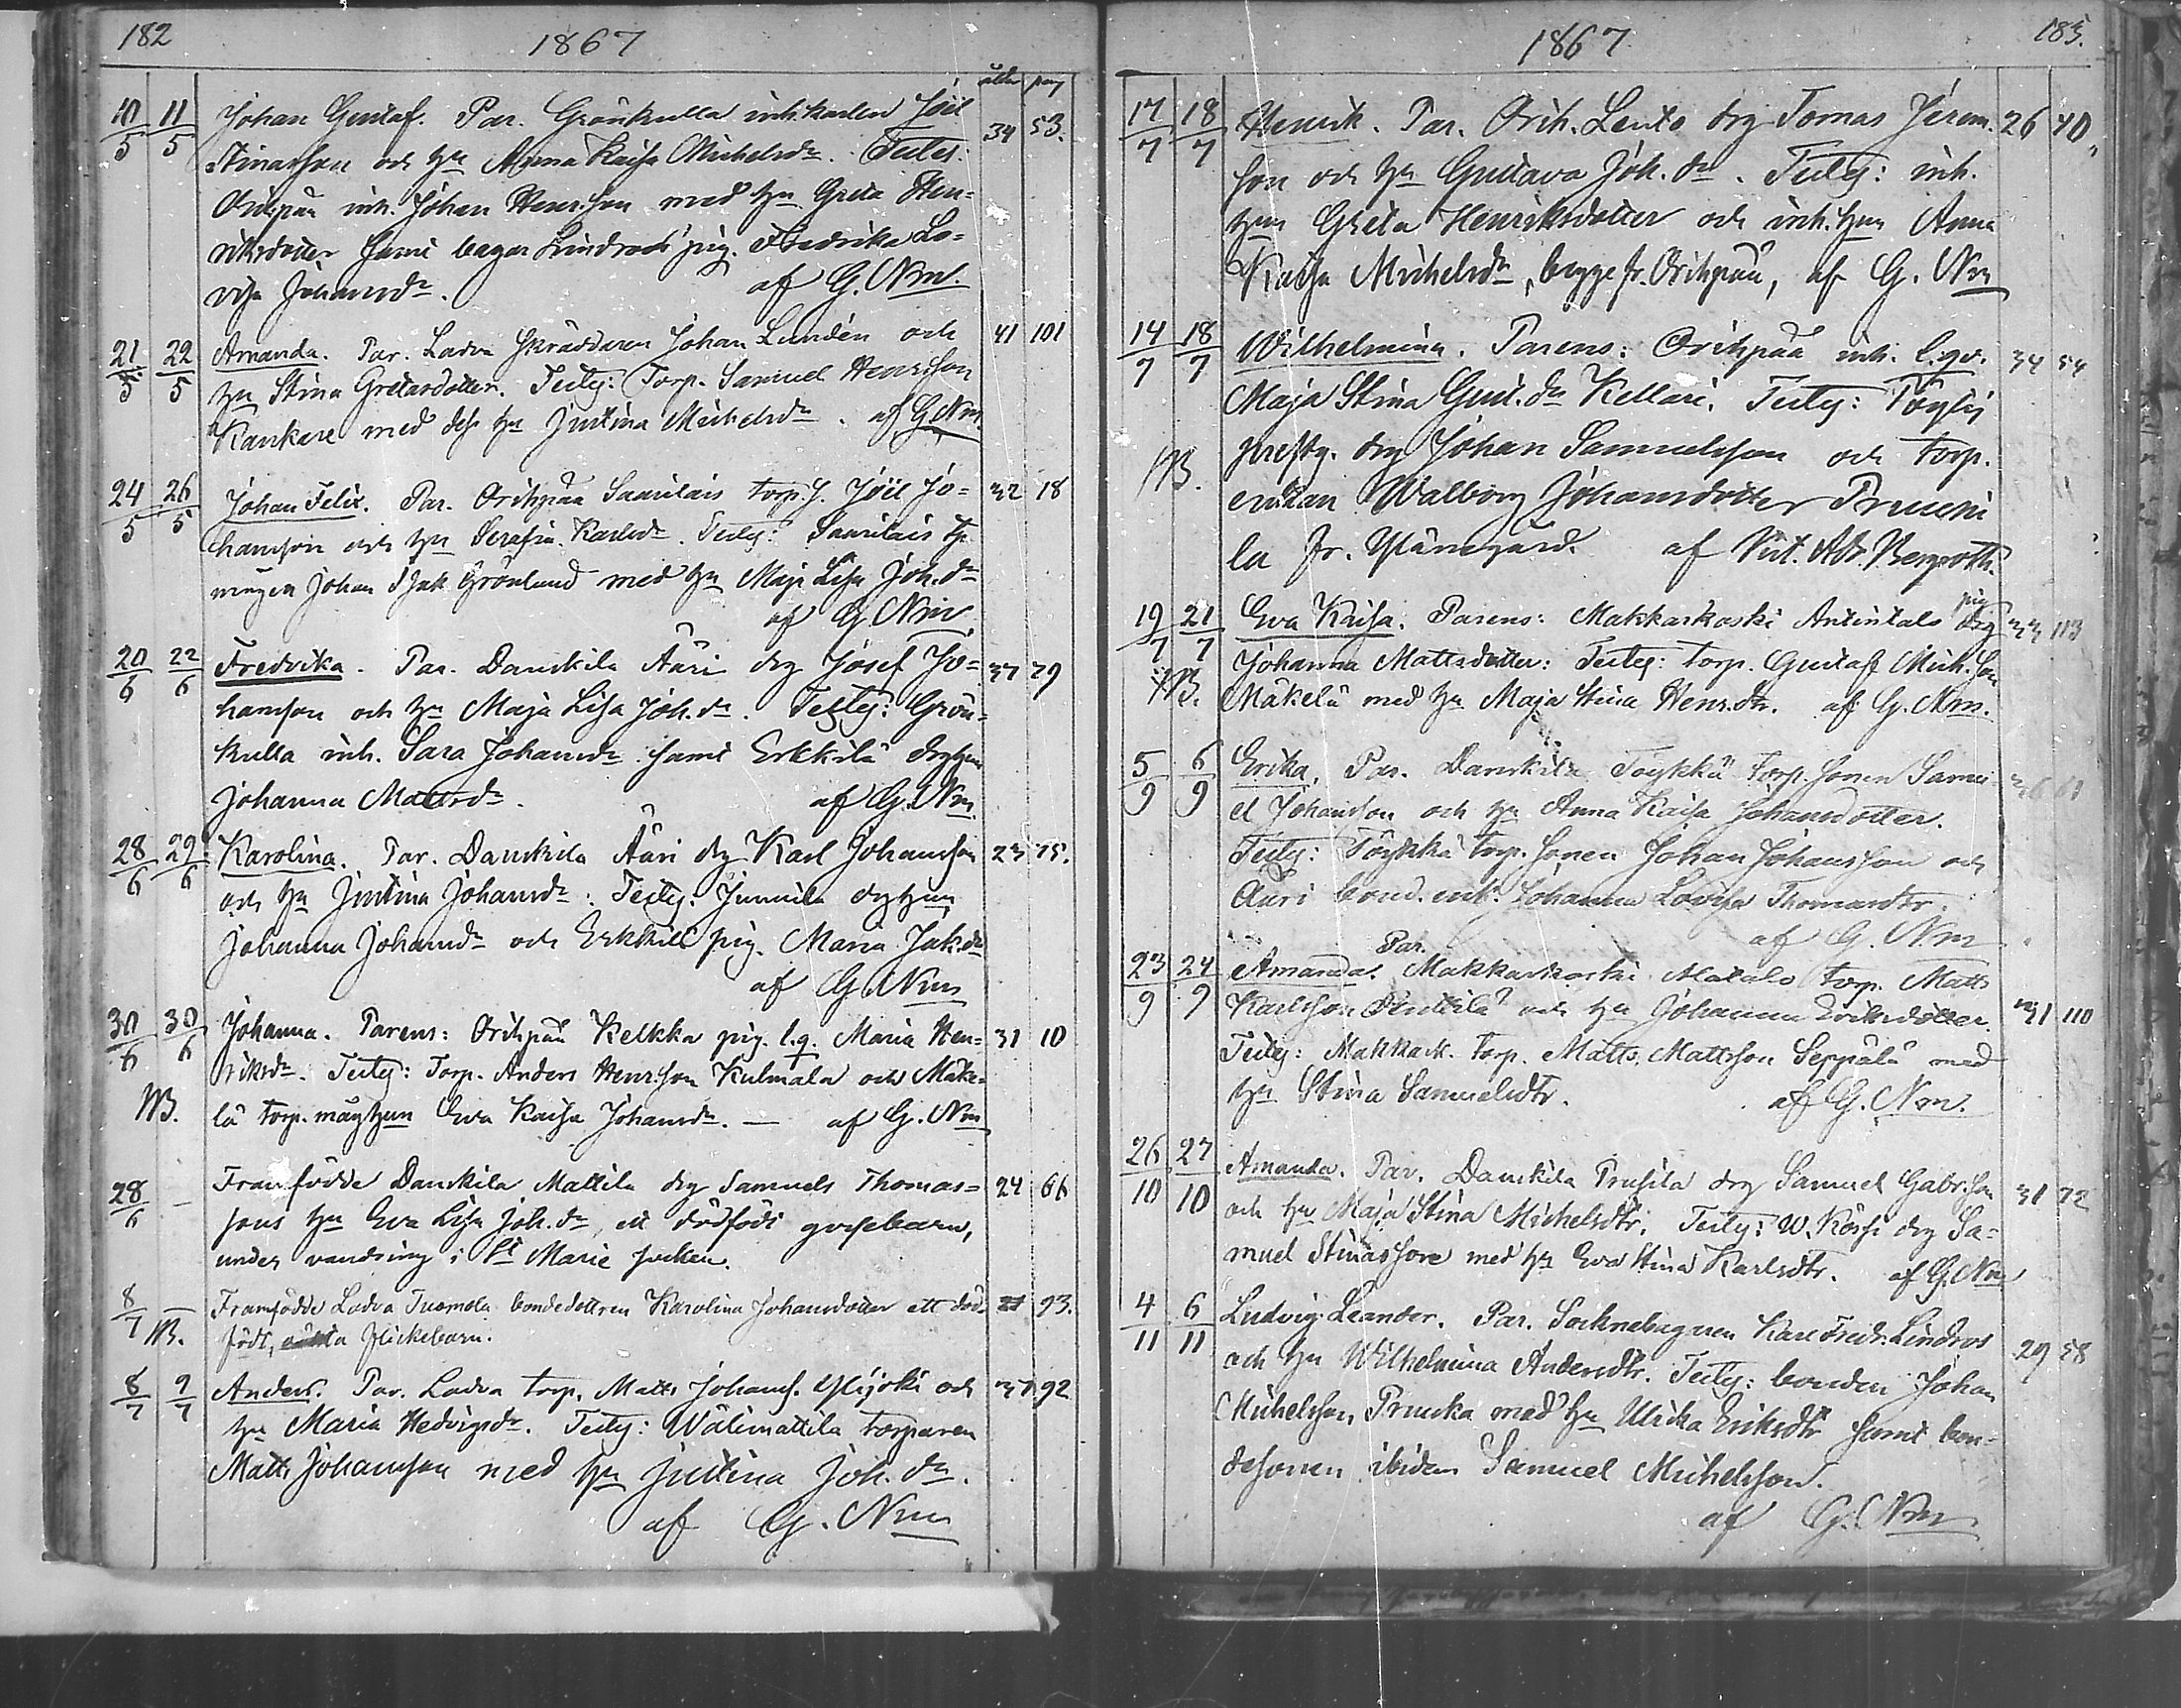 182
1867
ålder pag
10/5 11/5 Johan Gustaf. Par. Gränkulla inh.karlen Joel 34 53.
Stinasson och hu Anna Kaisa Michelsdr. Testes:
Orihpää inh. Johan Henr.son med hu Greta Hen=
riksdotter samt bagar Lindroos' pig. Fredrika Lo=
visa Johansdr. af G. Nm.
21/5 22/5 Amanda. Par. Ladva skräddaren Johan Lundén och 41 101
hu Stina Gretasdotter. Testes: Torp. Samuel Henrsson
Kankare med dess hu Justina Michelsdr. af G Nm.
24/5 26/5 Johan Felix. Par. Orihpää Saurilais torp.s. Joel Jo= 32 18
hansson och hu Serafia Karlsdr. Testes: Saurilais tp
mågen Johan Isak Grönlund med hu Maja Lisa Joh.dr
af G Nm.
20/6 22/6 Fredrika. Par. Danskila Ääri drg Josef Jo= 37 79
hansson och hu Maja Lisa Joh.dr. Testes: Grön-
kulla inh. Sara Johansdr samt Erkkilä drghun
Johanna Mattsdr. af G. Nm.
28/6 29/6 Karolina. Par. Danskila Ääri drg Karl Johansson 23 75.
och hu Justina Johansdr. Testes: Junnila drghun
Johanna Johansdr och Erkkilä pig. Maria Jak.dr
af G Nm
30/6 30/6 Johanna. Parens: Orihpää Kelkka pig. l.q. Maria Hen= 31 10
riksdr. Testes: Torp. Anders Henr.son Kulmala och Mäke=
NB. lä torp.måghun Eva Kaisa Johansdr. — af G. Nm
28/6 — Framfödde Danskila Mattila drg Samuels Thomas= 24 66
sons hu Eva Lisa Joh.dr, ett dödfödt gossebarn,
under vandring i St Marie socken.
8/7 — Framfödde Ladva Tuomola bondedottren Karolina Johansdotter ett död= 21 93.
NB. födt, oäkta flickebarn.
8/7 9/7 Anders. Par. Ladva torp. Matts Johanss. Ylijoki och 37 92
hu Maria Hedvigsdr. Testes: Wälimattila torparen
Matts Johansson med hu Justina Joh.dr.
af G. Nm
1867
183.
17/7 18/7 Henrik. Par. Orih. Lento drg Tomas Jerem. 26 40
son och hu Gustava Joh.dr. Testes: inh.
hun Greta Henriksdotter och inh.hun Anna
Kaisa Michelsdr, begge fr. Orihpää, af G. Nm
14/7 18/7 Wilhelmina. Parens: Orihpää inh. l.qv. 34 54
Maja Stina Gust.dr Kellari. Testes:
prestg. drg Johan Samuelsson och torp.
NB. enkan Walborg Johansdotter
la fr. Ylänegård. af Vict. Ad. Bergroth.
19/7 21/7 Eva Kaisa. Parens: Makkarkoski Anintalo pig 33 113
Johanna Mattsdotter: Testes: torp. Gustaf Mich.son
NB. Mäkelä med hu Maja Stina Henr.dtr. af G. Nm.
5/9 6/9 Erika. Par. Danskila Töykkä torp.sonen Samu- 36 61
el Johansson och hu Anna Kaisa Johansdotter.
Testes: Töykkä torp.sonen Johan Johansson och
Ääri bond.enk. Johanna Lovisa Thomasdtr.
af G. Nm
Par.
23/9 24/9 Amanda. Makkarkoski Alatalo torp. Matts
Karlsson Penttilä och hu Johanna Eriksdotter. 31 110
Testes: Makkark. torp. Matts Mattsson Seppälä med
hu Stina Samuelsdtr. af G. Nm.
26/10 27/10 Amanda. Par. Danskila Prusila drg Samuel Gabr.son 31 72
och hu Maja Stina Michelsdtr. Testes: W. Körsi drg Sa=
muel Stinasson med hu Eva Stina Karlsdtr. af G. Nm
4/11 6/11 Ludvig Leander. Par. Socknebagaren Karl Fredr. Lindros 29 58
och hu Wilhelmina Andersdtr. Testes: bonden Johan
Michelsson Pruuka med hu Ulrika Eriksdtr samt bon-
desonen ibidem Samuel Michelsson.
af G. Nm